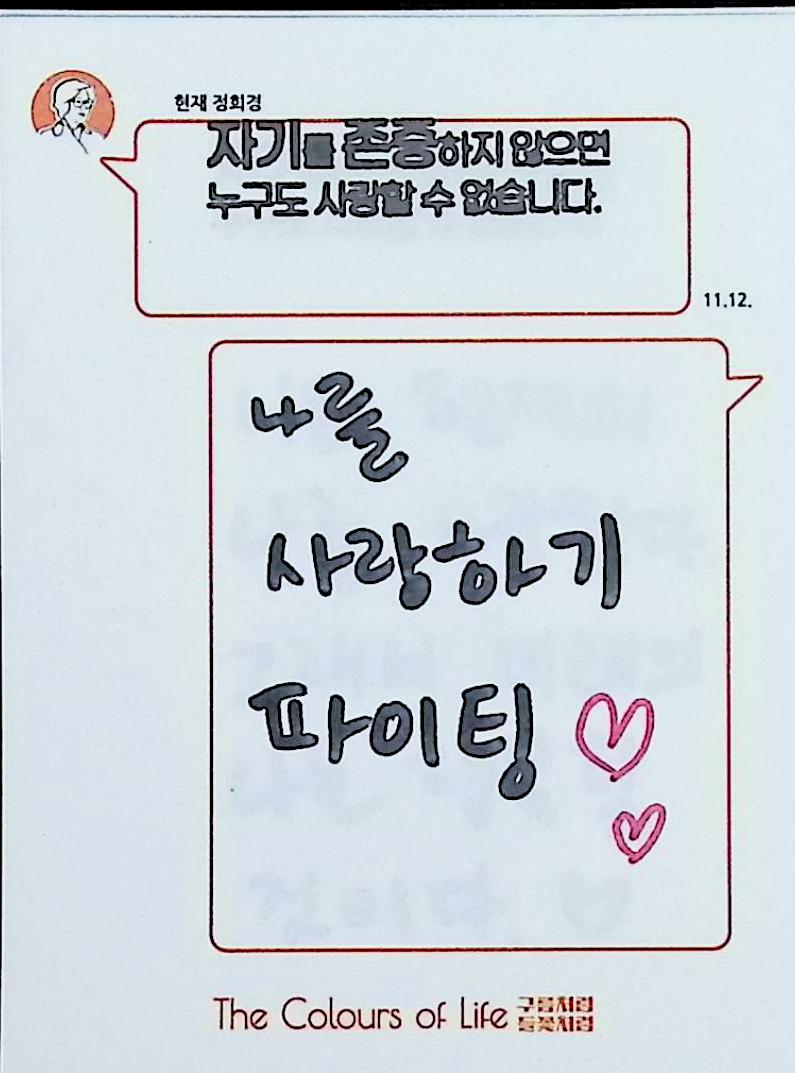 현재 정희경
자기를 존중하지 않으면
누구도 사랑할 수 없습니다.
11.12.
나를
사랑하기
파이팅
The Colours of Life 구름처럼
들꽃처럼